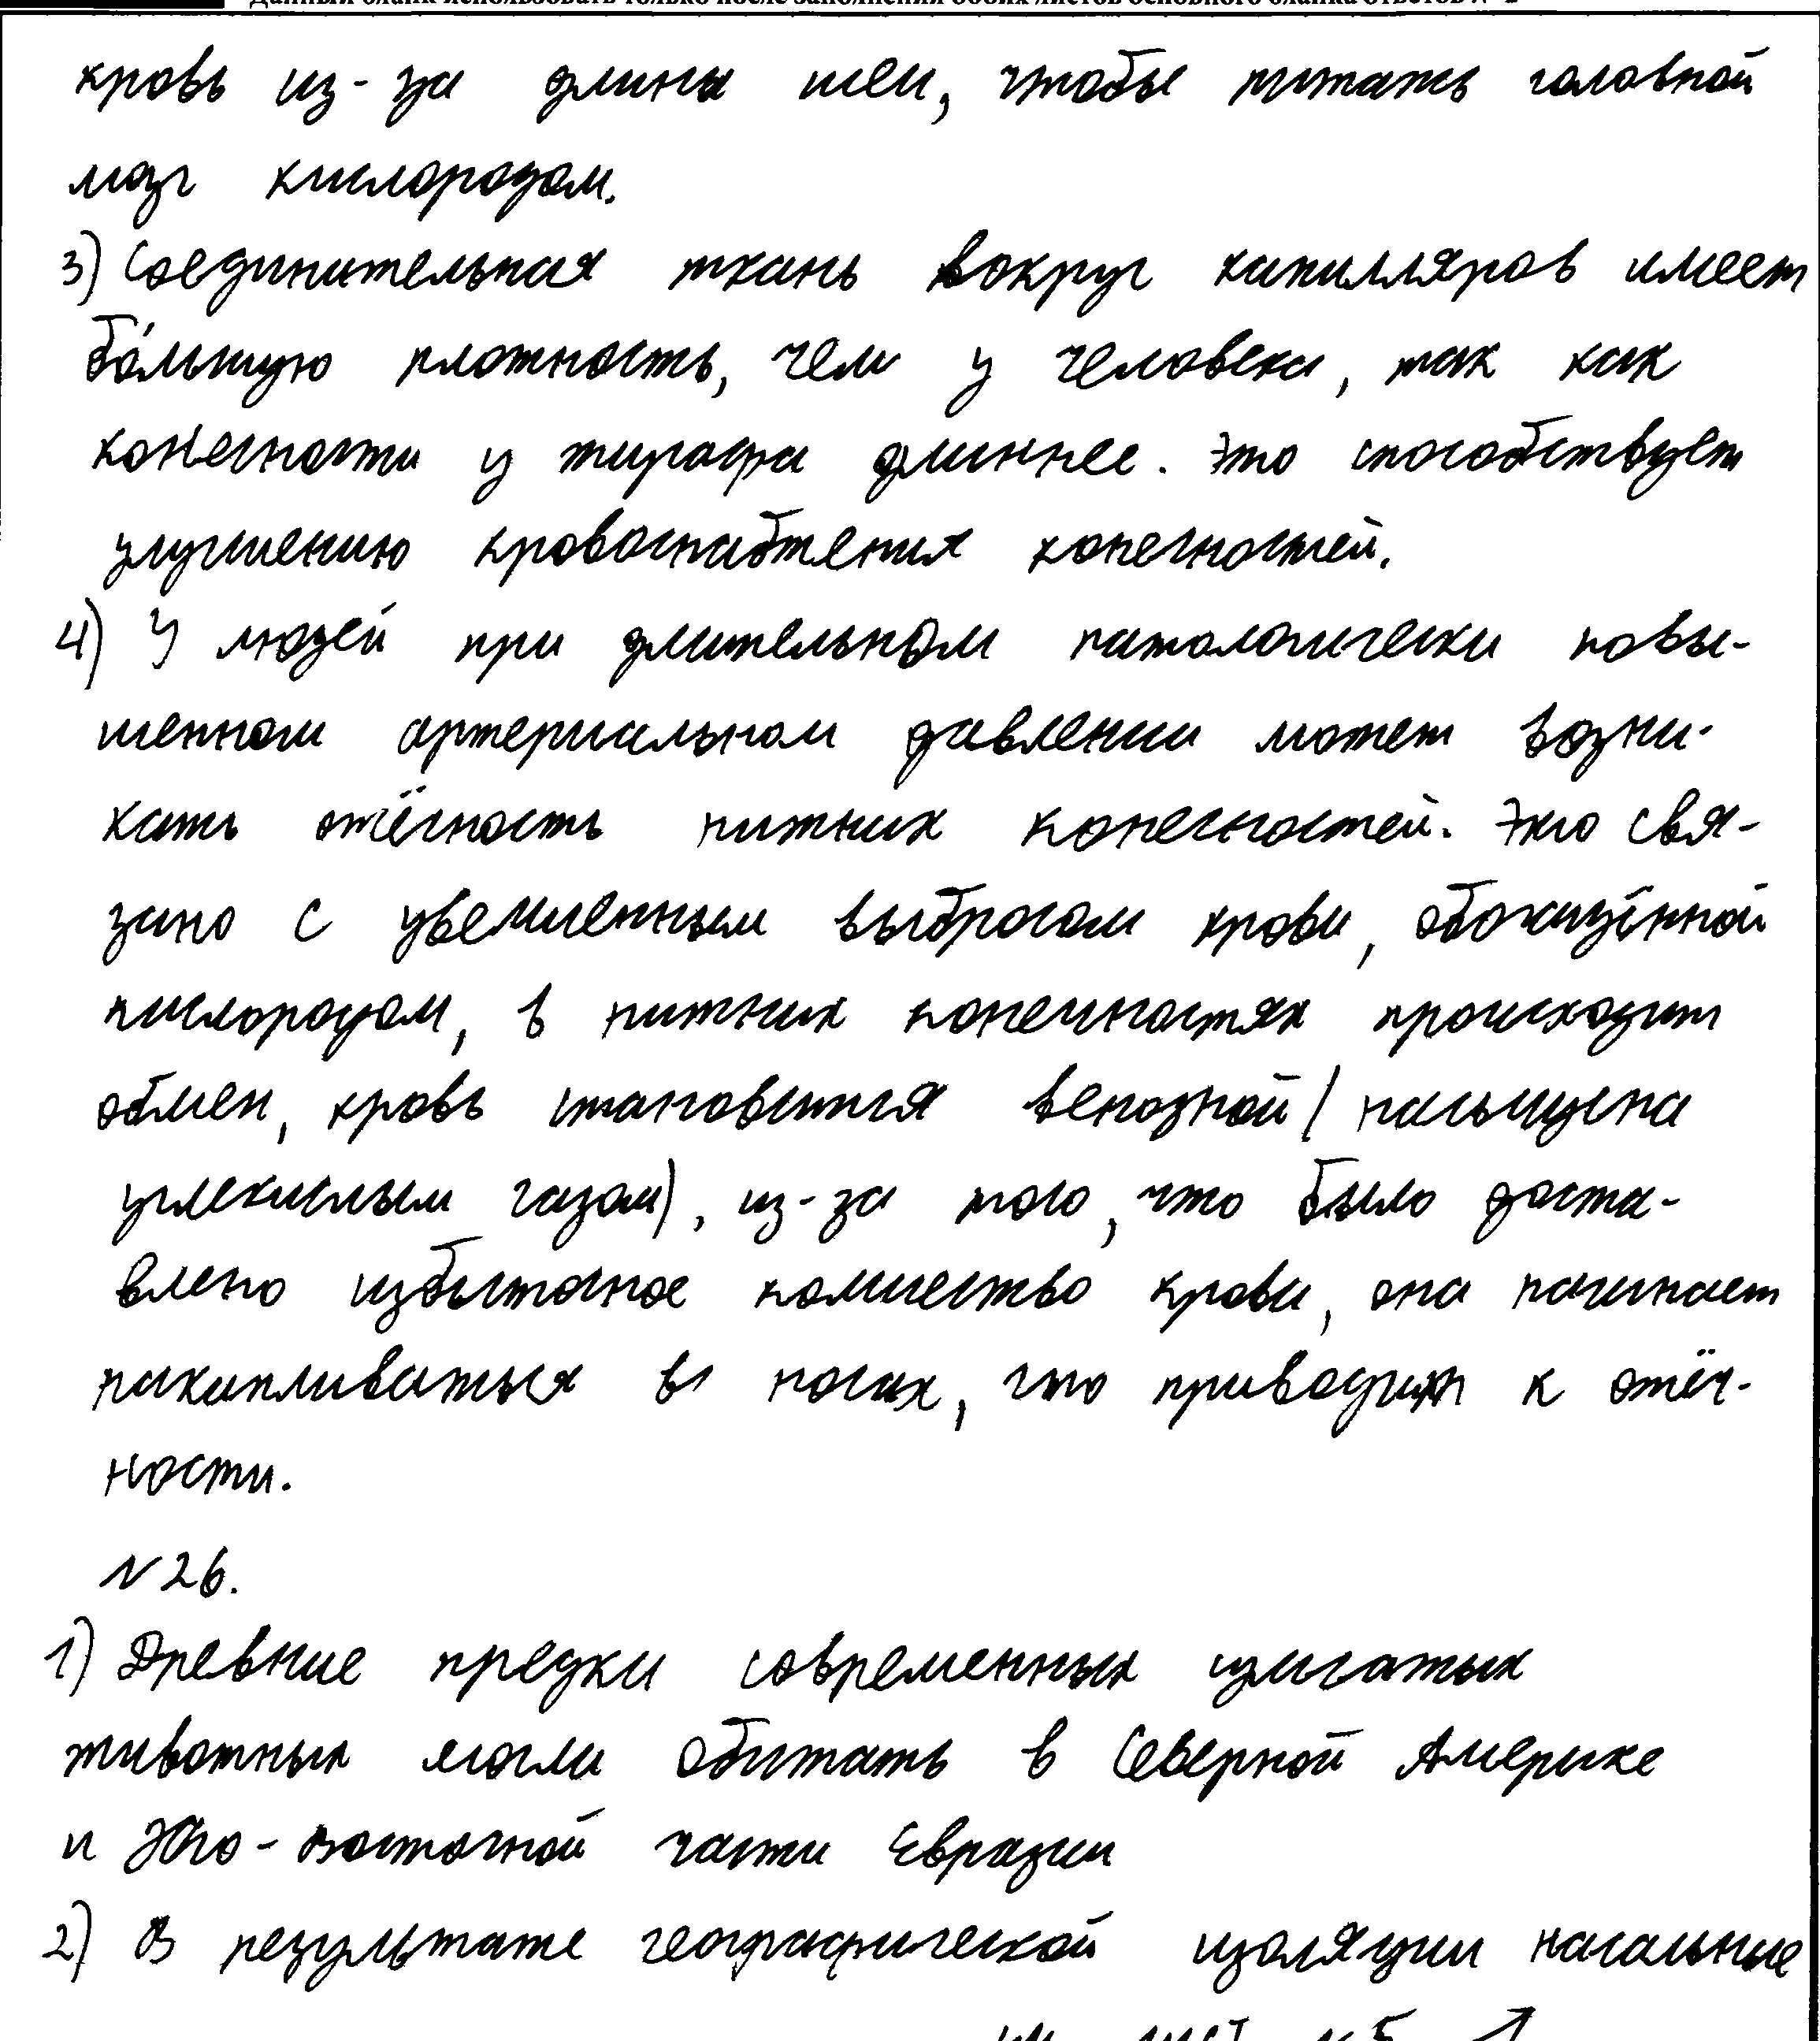 Данный бланк использовать только после заполнения обоих листов основного бланка ответов № 2
кровь из-за длины шеи, чтобы питать головной
мозг кислородом.
3) Соединительная ткань вокруг капилляров имеет
бо́льшую плотность, чем у человека, так как
конечности у жирафа длиннее. Это способствует
улучшению кровоснабжения конечностей.
4) У людей при длительном патологически повы-
шенном артериальном давлении может возни-
кать отёчность нижних конечностей. Это свя-
зано с увеличенным выбросом крови, обогащённой
кислородом, в нижних конечностях происходит
обмен, кровь становится венозной (насыщена
углекислым газом), из-за того, что было доста-
влено избыточное количество крови, она начинает
накапливаться в ногах, что приводит к отёч-
ности.
№26.
1) Древние предки современных
животных могли обитать в Северной Америке
и Юго-восточной части Евразии
2) В результате географической изоляции
лист №5